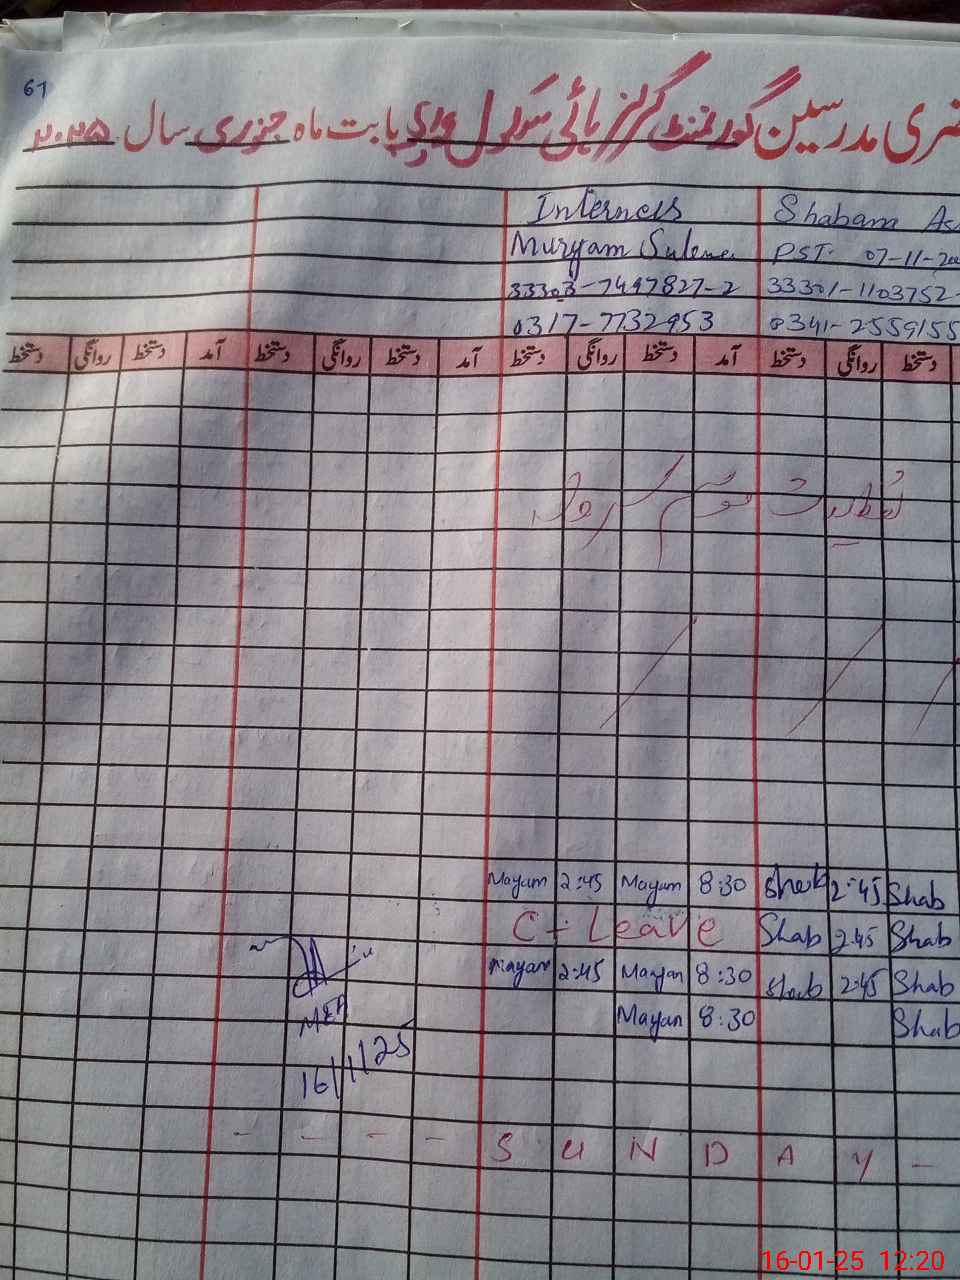 61
مدرسین گورنمنٹ گرلز ہائی سکول بابت ماہ جنوری سال ۲۰۲۵
Internees Shabam
Muryam PST. 07-11-
33303-7497827-2 33301-1103752-
0317-7732953 0341-2559155
دستخط روانگی دستخط آمد دستخط روانگی دستخط آمد دستخط روانگی دستخط آمد دستخط روانگی دستخط
تعطیلات موسم سرما
Mayam 2:45 Mayam 8:30 Shab 2:45 Shab
C - Leave Shab 2:45 Shab
Mayam 2:45 Mayam 8:30 Shab 2:45 Shab
Mayam 8:30 Shab
MEA
16/1/25
- - - - S U N D A Y -
16-01-25 12:20